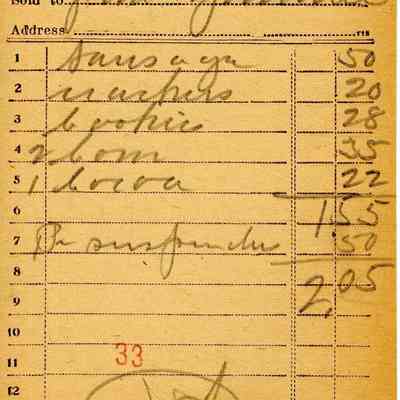 Sold to
Address
1 Sausage 50
2 crackers 20
3 cookies 28
4 2 corn 35
5 1 cocoa 22
6 155
7 1 Pr suspenders 50
8 2.05
9
10
11 33
12